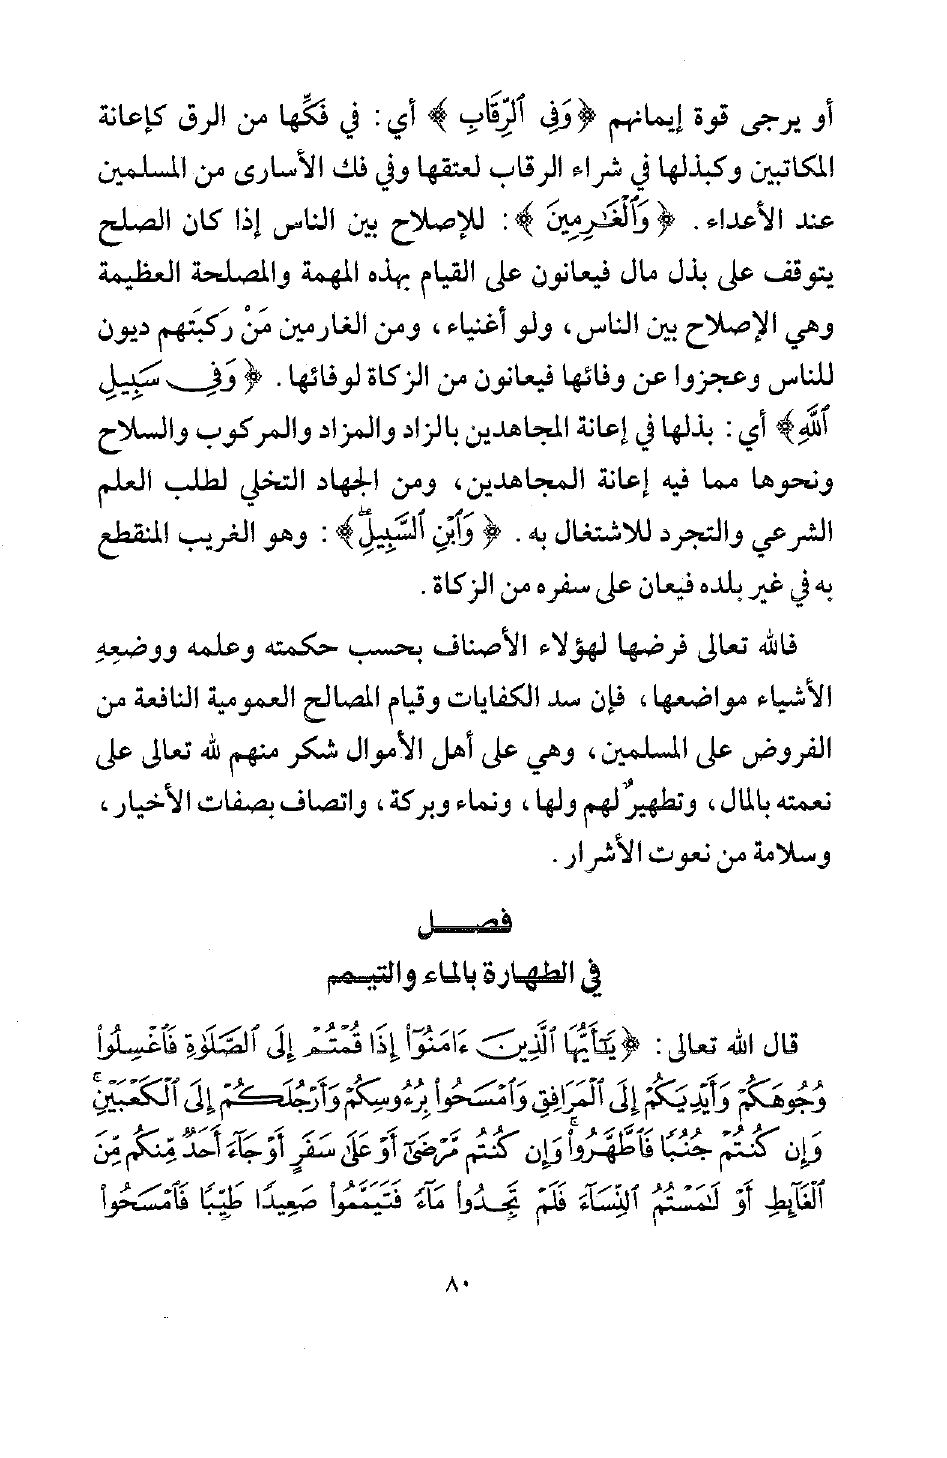 أو يرجى قوة إيمانهم ﴿وَفِي ٱلرِّقَابِ﴾ أي: في فَكِّها من الرق كإعانة
المكاتبين وكبذلها في شراء الرقاب لعتقها وفي فك الأسارى من المسلمين
عند الأعداء. ﴿وَٱلْغَٰرِمِينَ﴾: للإصلاح بين الناس إذا كان الصلح
يتوقف على بذل مال فيعانون على القيام بهذه المهمة والمصلحة العظيمة
وهي الإصلاح بين الناس، ولو أغنياء، ومن الغارمين مَنْ رَكبَتهم ديون
للناس وعجزوا عن وفائها فيعانون من الزكاة لوفائها. ﴿وَفِي سَبِيلِ
ٱللَّهِ﴾ أي: بذلها في إعانة المجاهدين بالزاد والمزاد والمركوب والسلاح
ونحوها مما فيه إعانة المجاهدين، ومن الجهاد التخلي لطلب العلم
الشرعي والتجرد للاشتغال به. ﴿وَٱبْنِ ٱلسَّبِيلِۖ﴾: وهو الغريب المنقطع
به في غير بلده فيعان على سفره من الزكاة.
فالله تعالى فرضها لهؤلاء الأصناف بحسب حكمته وعلمه ووضعِهِ
الأشياء مواضعها، فإن سد الكفايات وقيام المصالح العمومية النافعة من
الفروض على المسلمين، وهي على أهل الأموال شكر منهم لله تعالى على
نعمته بالمال، وتطهيرٌ لهم ولها، ونماء وبركة، واتصاف بصفات الأخيار،
وسلامة من نعوت الأشرار.
فصـــل
في الطهارة بالماء والتيمم
قال الله تعالى: ﴿يَٰٓأَيُّهَا ٱلَّذِينَ ءَامَنُوٓا۟ إِذَا قُمْتُمْ إِلَى ٱلصَّلَوٰةِ فَٱغْسِلُوا۟
وُجُوهَكُمْ وَأَيْدِيَكُمْ إِلَى ٱلْمَرَافِقِ وَٱمْسَحُوا۟ بِرُءُوسِكُمْ وَأَرْجُلَكُمْ إِلَى ٱلْكَعْبَيْنِۚ
وَإِن كُنتُمْ جُنُبًا فَٱطَّهَّرُوا۟ۚ وَإِن كُنتُم مَّرْضَىٰٓ أَوْ عَلَىٰ سَفَرٍ أَوْ جَآءَ أَحَدٌ مِّنكُم مِّنَ
ٱلْغَآئِطِ أَوْ لَٰمَسْتُمُ ٱلنِّسَآءَ فَلَمْ تَجِدُوا۟ مَآءً فَتَيَمَّمُوا۟ صَعِيدًا طَيِّبًا فَٱمْسَحُوا۟
٨٠